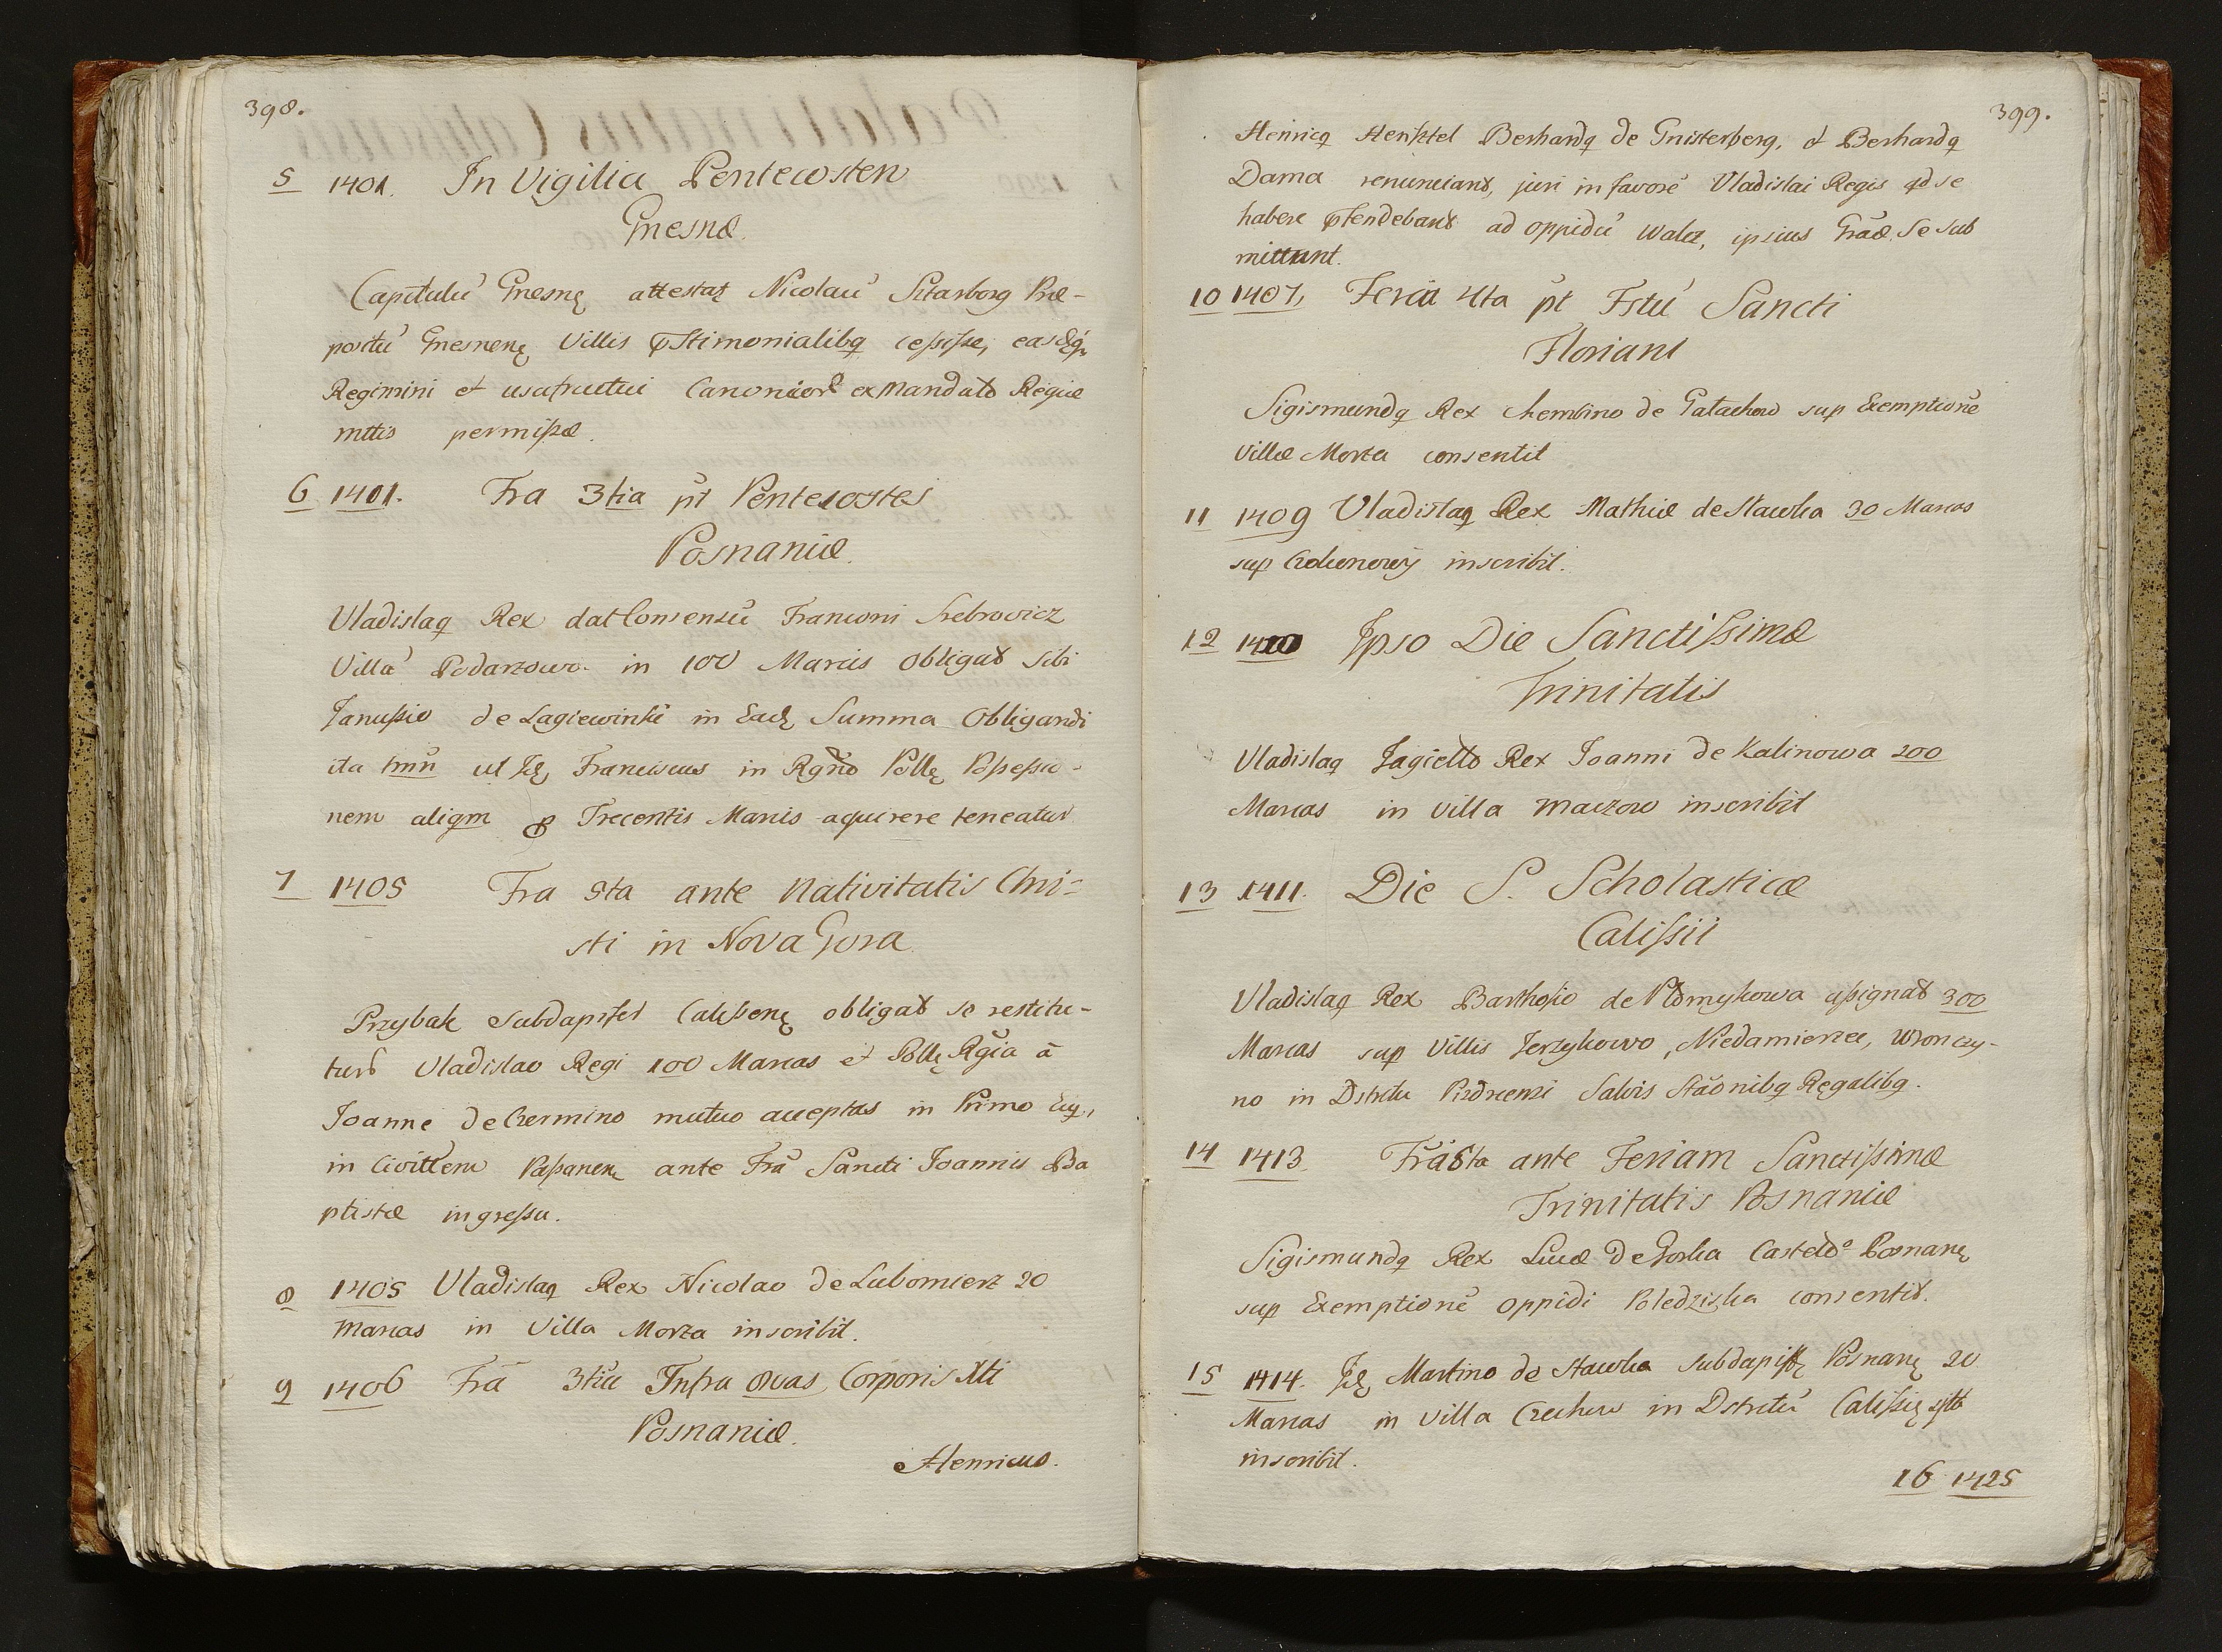 398.
5 1401. In Vigilia Pentecosten
Gnesnæ.
Capitulū Gnesnę attestaţ Nicolaū Sztarborg Præ-
positū Gnesnenę Villis Pstimonialibq cessisse, easdq̃
Regimini et usufructui Canonicor ex Mandato Regiæ
mttis permissæ.
6 1401. Fra 3tia pt Pentecostes
Posnaniæ.
Vladislaq Rex dat Consensū Franconi Srebrowicz
Villā Podarzowo in 100 Marcis obligat sibi
Janussio de Lagiewinki in Eadę Summa Obligandi
ita tmn ut Idę Franciscus in Rgno Pollę Possessio-
nem aliqm P Trecentis Marcis aquirere teneatur
7 1405 Fra 5ta ante Nativitatis Chri=
sti in Nova Gora
Przybak Subdapifer Calissenę obligat se restitu-
turū Vladislao Regi 100 Marcas et Pollę Rgia ā
Joanne de Czermino mutuo acceptas in Primo Eg,
in Civittem Possanenę ante Frā Sancti Joannis Ba
ptistæ ingressu.
8 1405 Vladislaq Rex Nicolao de Lubomierz 20
Marcas in Villa Morza inscribit.
9 1406 Frā 3tia Infra 8vas Corporis Xti
Posnaniæ.
Henricus.
399.
Heinricq Henktel Berhardq de Gnisterberg, et Berhardq
Dama renunciant, juri in favorē Vladislai Regis qd se
habere Ptendebant ad oppidū Walcz, ipsius Grãæ, se sub
mittunt.
10 1407, Feria 4ta pt Fstū Sancti
Floriani
Sigismundq Rex Chembino de Gatachow sup Exemptionē
Villæ Morza consentit
11 1409 Vladislaq Rex Mathiæ de Slawka 30 Marcas
sup inscribit.
12 1410 Ipso Die Sanctissimæ
Trinitatis
Vladislaq Jagiello Rex Joanni de Kalinowa 200
Marcas in Villa Maczow inscribit
13 1411. Die S. Scholasticæ
Calissii
Vladislaq Rex Barthosio de Plomykowa assignat 300
Marcas sup Villis Jerzykowo, Niedamierzec, Wronczy-
no in Dstrctu Pizdriensi Salvis Stãonibq Regalibq.
14 1413 Frā 5ta ante Feriam Sanctissimæ
Trinitatis Posnaniæ
Sigismundq Rex Lucæ de Gorka Castello Posnanę
sup Exemptionē oppidi Poledziska consentit.
15 1414. Idę Martino de Slawka Subdapifę Posnanę 20
Marcas in Villa Czechow in Dstrctū Calissię
inscribit.
16 1425